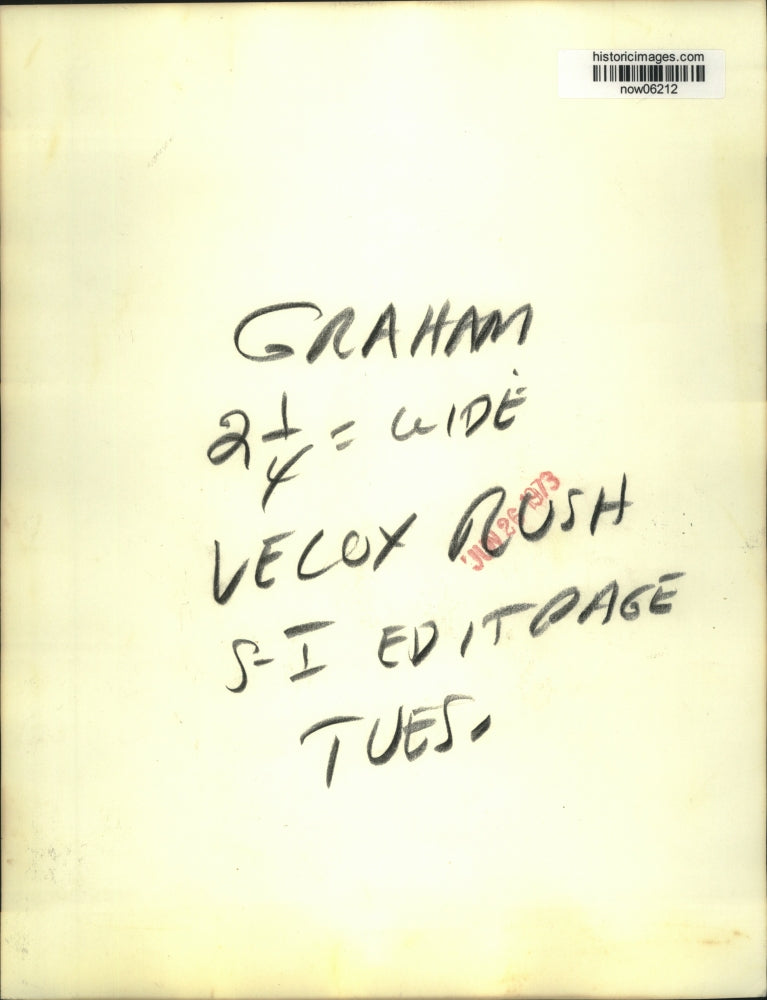 historicimages.com
now06212
GRAHAM
2 1/4 = WIDE
VELOX RUSH
JUN 26 1973
S-I EDIT PAGE
TUES.